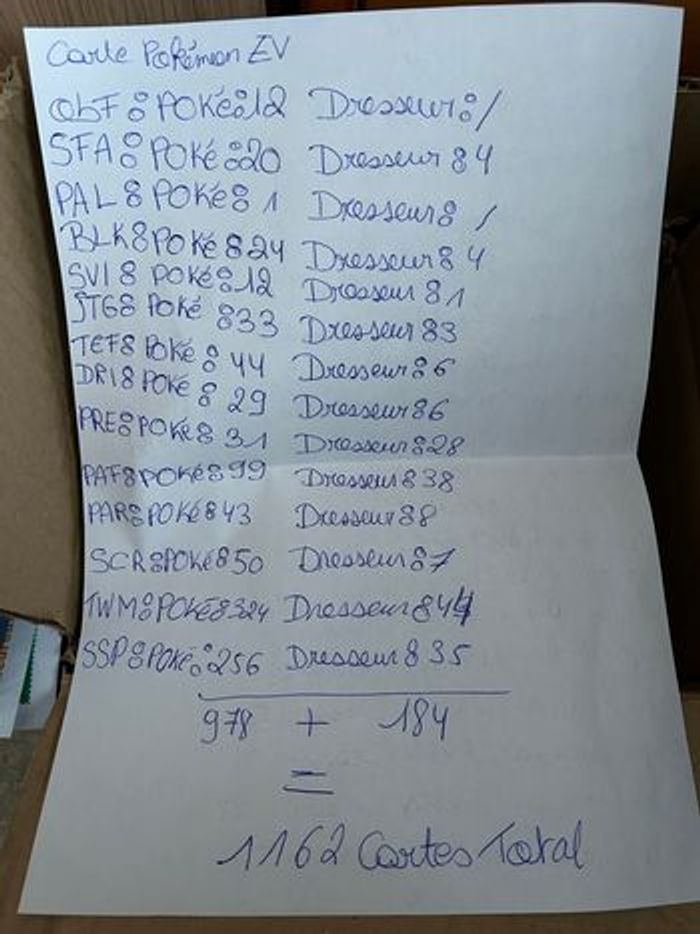 Carte Pokémon EV
ObF : POKé : 12 Dresseur : /
SFA : POKé : 20 Dresseur : 4
PAL : POKé : 1 Dresseur : /
BLK : POKé : 24 Dresseur : 4
SVI : POKé : 12 Dresseur : 1
JTG : POKé : 33 Dresseur : 3
TEF : POKé : 44 Dresseur : 6
DRI : POKé : 29 Dresseur : 6
PRE : POKé : 31 Dresseur : 28
PAF : POKé : 99 Dresseur : 38
PAR : POKé : 43 Dresseur : 8
SCR : POKé : 50 Dresseur : 7
TWM : POKé : 324 Dresseur : 44
SSP : POKé : 256 Dresseur : 35
978 + 184
=
1162 Cartes Total